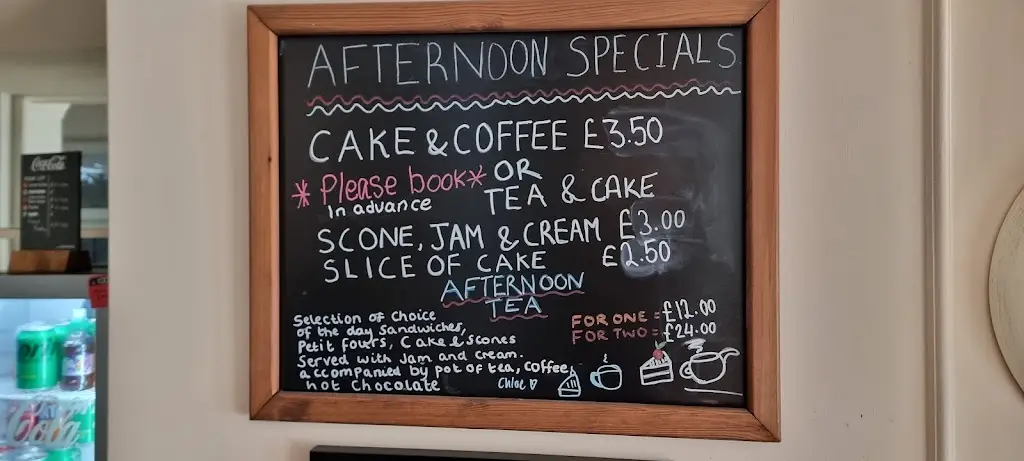 AFTERNOON SPECIALS
CAKE & COFFEE £3.50
*Please book* OR
in advance TEA & CAKE
SCONE, JAM & CREAM £3.00
SLICE OF CAKE £2.50
AFTERNOON
TEA
Selection of Choice
of the day Sandwiches,
Petit fours, Cake & Scones
Served with Jam and Cream.
accompanied by pot of tea, coffee,
hot Chocolate
Chloe
FOR ONE = £12.00
FOR TWO = £24.00
Coca-Cola